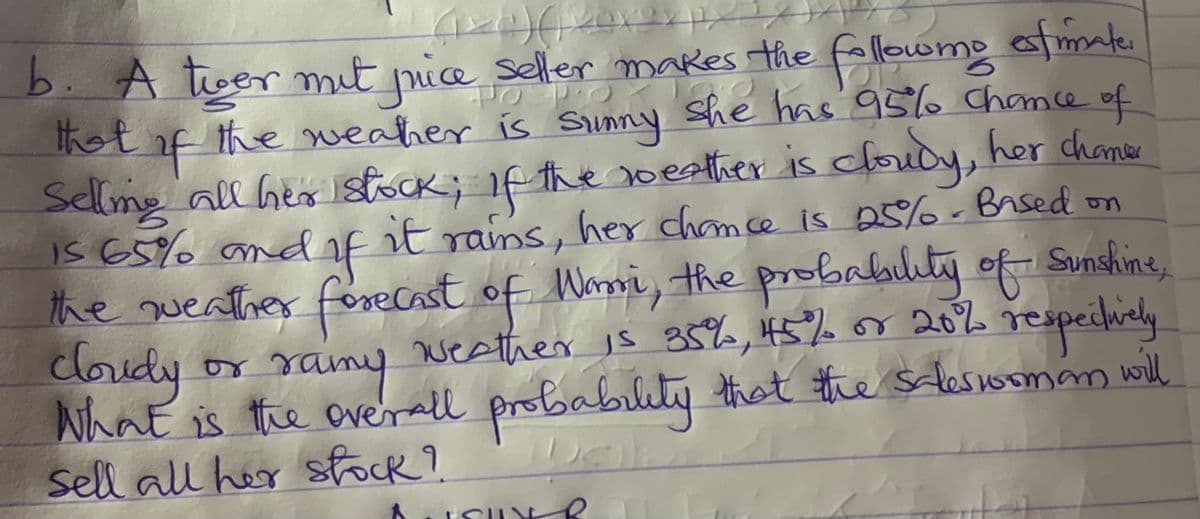 b. A tiger nut juice seller makes the following estimates
that if the weather is sunny she has 95% chance of
selling all her stock; if the weather is cloudy, her chance
is 65% and if it rains, her chance is 25%. Based on
the weather forecast of Warri, the probability of sunshine,
cloudy or rainy weather is 35%, 45% or 20% respectively
What is the overall probability that the saleswoman will
sell all her stock?